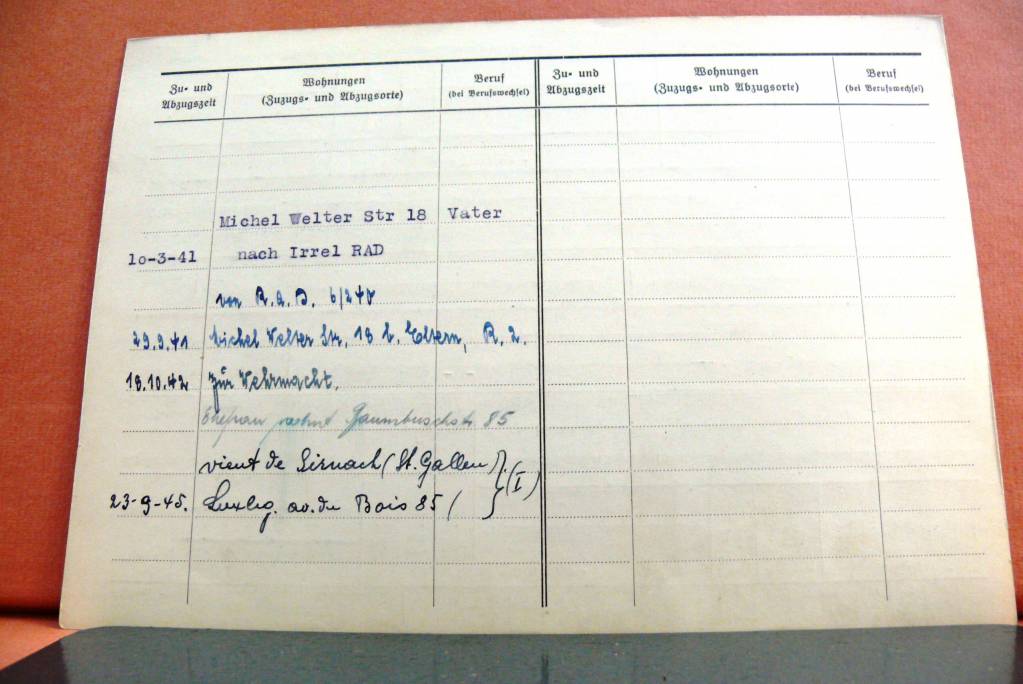 Zu- und Abzugszeit
Wohnungen
(Zuzugs- und Abzugsorte)
Beruf
(bei Berufswechsel)
Zu- und Abzugszeit
Wohnungen
(Zuzugs- und Abzugsorte)
Beruf
(bei Berufswechsel)
Michel Welter Str 18 Vater
10-3-41 nach Irrel RAD
von R.A.D. 6/240
29.9.41 Michel Welter Str. 18 b. Eltern, R. 2.
18.10.42 zur Wehrmacht.
Ehefrau wohnt Gaumbuschstr. 85
vient de Sirnach (St. Gallen)
23-9-45. Luxbg. av. du Bois 85 ( } (I)